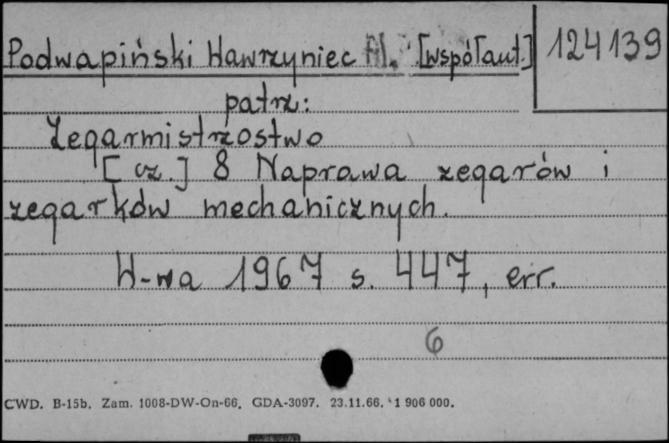 Podwapiński Wawrzyniec [współaut.] 124139
patrz:
Zegarmistrzostwo
[cz.] 8 Naprawa zegarów i
zegarków mechanicznych.
W-wa 1967 s. 447, err.
6
CWD. B-15b. Zam. 1008-DW-On-66. GDA-3097. 23.11.66. 1 906 000.